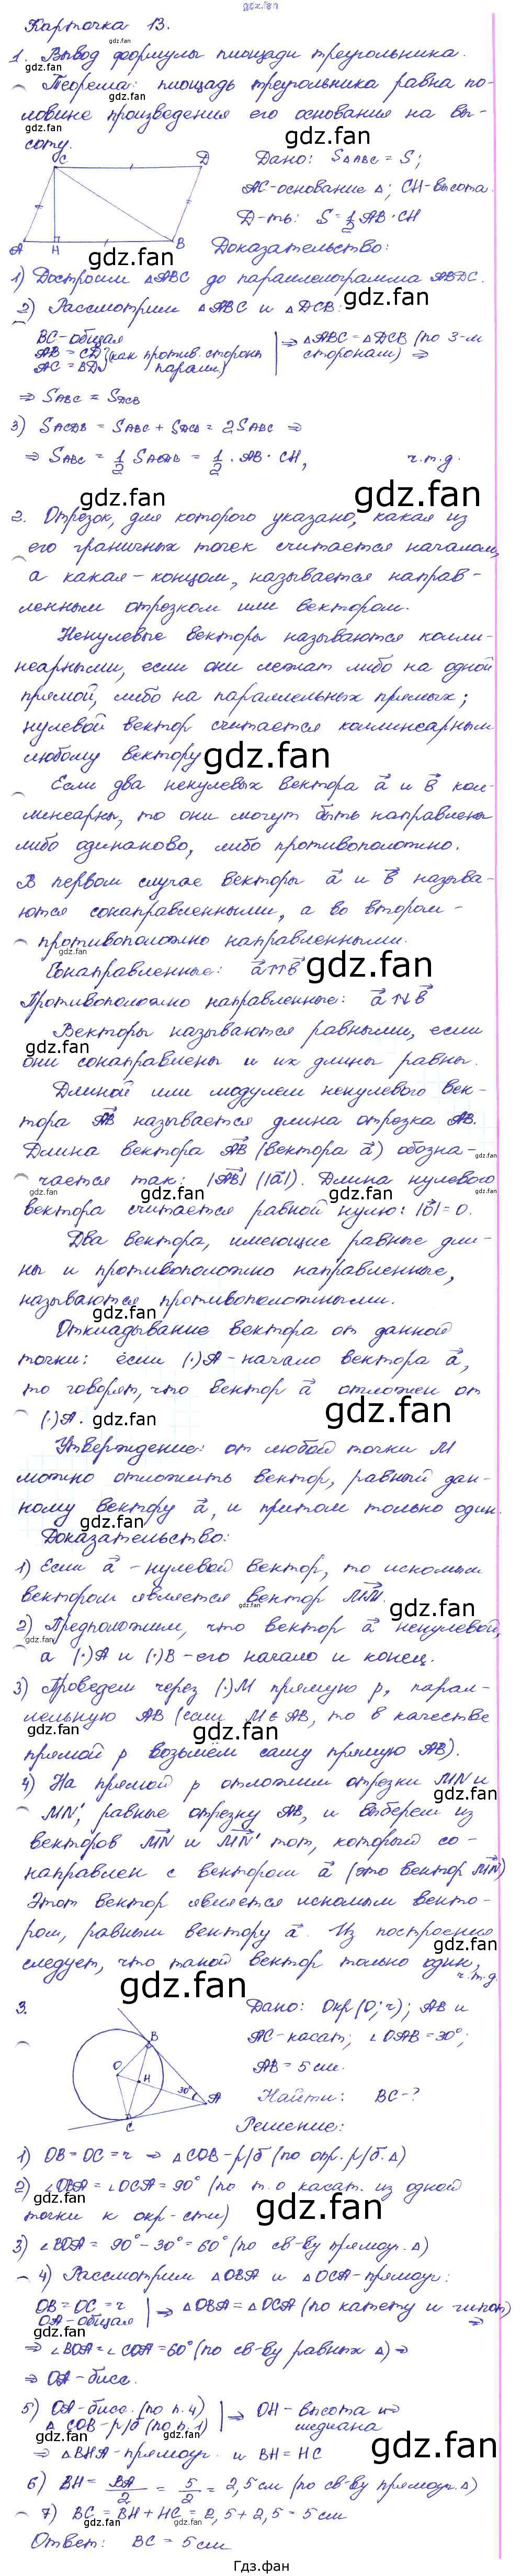 gdz.fan
Карточка 13.
1. Вывод формулы площади треугольника.
Теорема: площадь треугольника равна по-
ловине произведения его основания на вы-
соту.
Дано: SΔABC = S;
AC-основание Δ; CH-высота.
Д-ть: S = 1/2 AB · CH
C D A H B
Доказательство:
1) Достроим ΔABC до параллелограмма ABDC.
2) Рассмотрим ΔABC и ΔDCB:
BC - общая
AB = CD (как против. стороны
AC = BD парал.)
⇒ ΔABC = ΔDCB (по 3-м
сторонам) ⇒
⇒ SABC = SDCB
3) SACDB = SABC + SDCB = 2SABC ⇒
⇒ SABC = 1/2 SACDB = 1/2 · AB · CH, ч.т.д.
2. Отрезок, для которого указано, какая из
его граничных точек считается началом,
а какая - концом, называется направ-
ленным отрезком или вектором.
Ненулевые векторы называются колли-
неарными, если они лежат либо на одной
прямой, либо на параллельных прямых;
нулевой вектор считается коллинеарным
любому вектору
Если два ненулевых вектора a и b кол-
линеарны, то они могут быть направлены
либо одинаково, либо противоположно.
В первом случае векторы a и b называ-
ются сонаправленными, а во втором -
противоположно направленными.
Сонаправленные: a↑↑b
Противоположно направленные: a↑↓b
Векторы называются равными, если
они сонаправлены и их длины равны.
Длиной или модулем ненулевого век-
тора AB называется длина отрезка AB.
Длина вектора AB (вектора a) обозна-
чается так: |AB| (|a|). Длина нулевого
вектора считается равной нулю: |0| = 0.
Два вектора, имеющие равные дли-
ны и противоположно направленные,
называются противоположными.
Откладывание вектора от данной
точки: если (·)A - начало вектора a,
то говорят, что вектор a отложен от
(·)A.
Утверждение: от любой точки M
можно отложить вектор, равный дан-
ному вектору a, и притом только один.
Доказательство:
1) Если a - нулевой вектор, то искомым
вектором является вектор MM.
2) Предположим, что вектор a ненулевой,
а (·)A и (·)B - его начало и конец.
3) Проведем через (·)M прямую p, парал-
лельную AB (если M∈AB, то в качестве
прямой p возьмём саму прямую AB).
4) На прямой p отложим отрезки MN и
MN', равные отрезку AB, и выберем из
векторов MN и MN' тот, который со-
направлен с вектором a (это вектор MN)
Этот вектор является искомым векто-
ром, равным вектору a. Из построения
следует, что такой вектор только один,
ч.т.д.
3. Дано: Окр(O; r); AB и
AC-касат; ∠OAB = 30°;
AB = 5 см.
Найти: BC - ?
B O H 30° A C
Решение:
1) OB = OC = r ⇒ ΔCOB - р/б (по опр. р/б. Δ)
2) ∠OBA = ∠OCA = 90° (по т. о касат. из одной
точки к окр-сти)
3) ∠BOA = 90° - 30° = 60° (по св-ву прямоуг. Δ)
4) Рассмотрим ΔOBA и ΔOCA-прямоуг:
OB = OC = r
OA - общая
⇒ ΔOBA = ΔOCA (по катету и гипот) ⇒
⇒ ∠BOA = ∠COA = 60° (по св-ву равных Δ) ⇒
⇒ OA - бисс.
5) OA - бисс. (по п. 4)
ΔCOB - р/б (по п. 1)
⇒ OH - высота и
медиана
⇒ ΔBHA - прямоуг. и BH = HC
6) BH = BA/2 = 5/2 = 2,5 см (по св-ву прямоуг. Δ)
7) BC = BH + HC = 2,5 + 2,5 = 5 см
Ответ: BC = 5 см
Гдз.фан